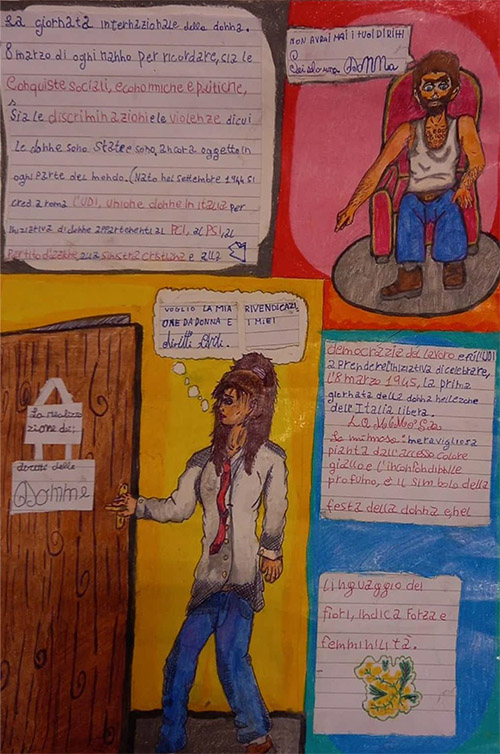 La giornata internazionale della donna.
8 marzo di ogni nanno per ricordare, sia le
Conquiste sociali, economiche e politiche,
sia le discriminazioni e le violenze di cui
le donne sono state e sono, ancora oggetto in
ogni parte del mondo. (Nato nel settembre 1944 si
cred a roma l'UDI, unione donne in italia per
iniziativa di donne appartenenti al PCI, al PSI, al
Partito d'azione, alla sinistra cristiana e alla
NON AVRAI MAI I TUOI DIRITTI
sei solo una DONNA
VOGLIO LA MIA RIVENDICAZI
ONE DA DONNA E I MIEI
diritti
La realizza
zione dei
diritti delle
Donne
democrazia del lavoro e fu l'UDI
a prendere l'iniziativa di celebrare,
l'8 marzo 1945, la prima
giornata della donna nelle zone
dell'Italia libera.
LA MIMOSA
La mimosa: meravigliosa
pianta dall'acceso colore
giallo e l'inconfondibile
profumo, è il simbolo della
festa della donna e, nel
linguaggio dei
fiori, indica forza e
femminilità.